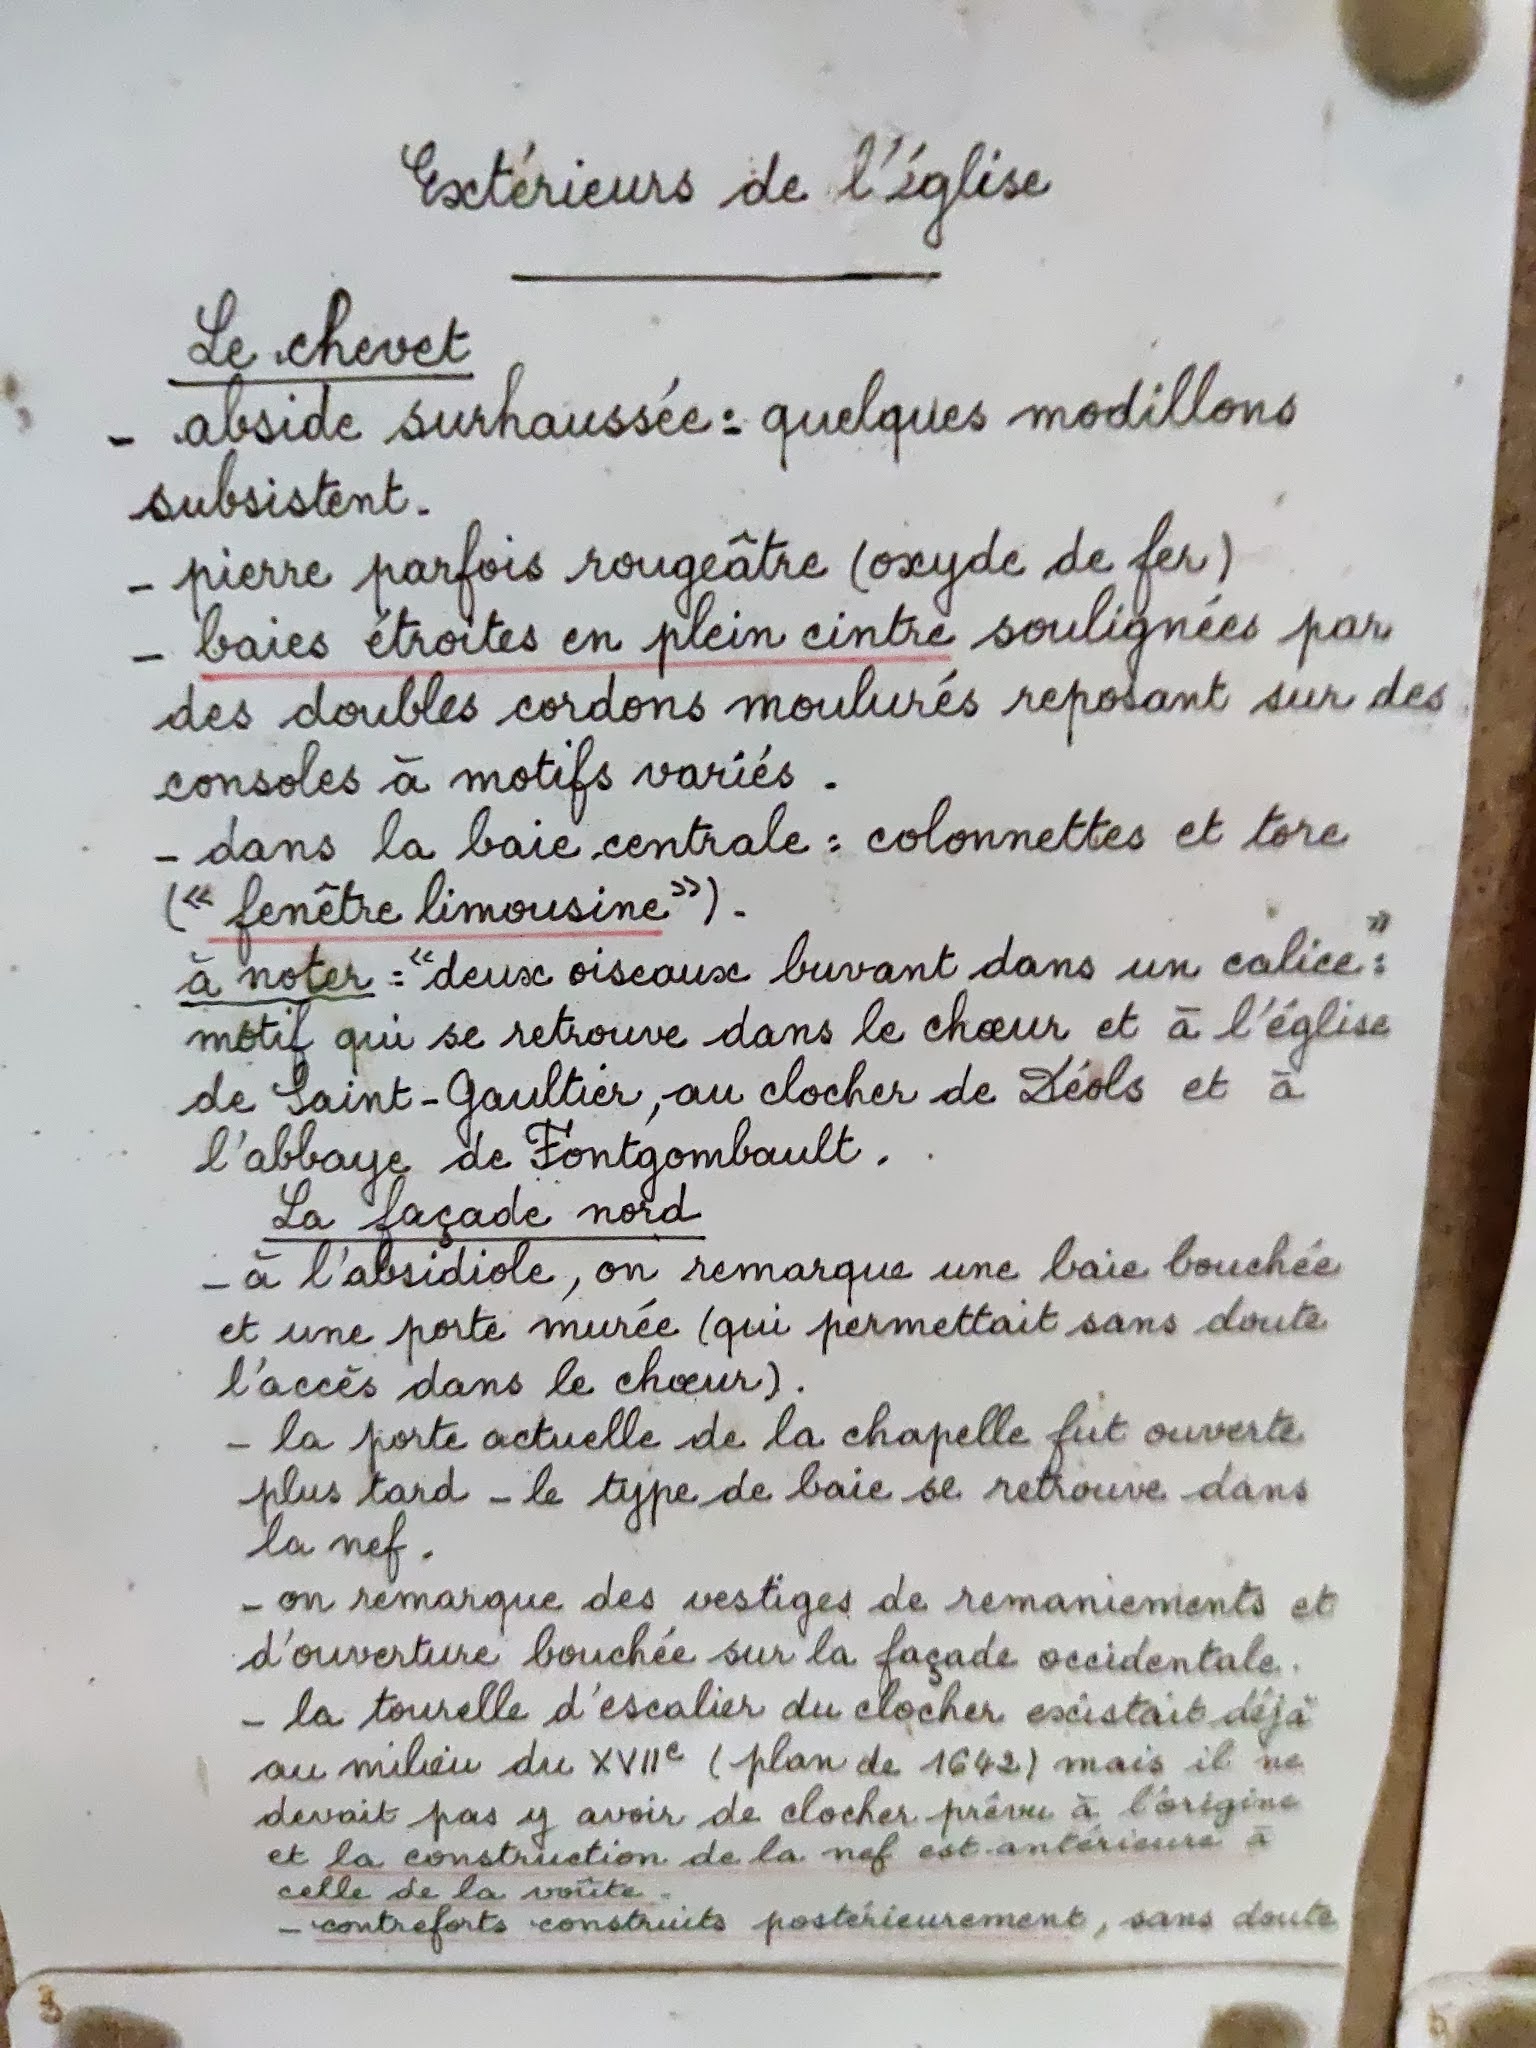 Extérieurs de l'église
Le chevet
- abside surhaussée : quelques modillons
subsistent.
- pierre parfois rougeâtre (oxyde de fer)
- baies étroites en plein cintre soulignées par
des doubles cordons moulurés reposant sur des
consoles à motifs variés.
- dans la baie centrale : colonnettes et tore
(« fenêtre limousine »).
à noter : "deux oiseaux buvant dans un calice" :
motif qui se retrouve dans le chœur et à l'église
de Saint-Gaultier, au clocher de Déols et à
l'abbaye de Fontgombault.
La façade nord
- à l'absidiole, on remarque une baie bouchée
et une porte murée (qui permettait sans doute
l'accès dans le chœur).
- la porte actuelle de la chapelle fut ouverte
plus tard - le type de baie se retrouve dans
la nef.
- on remarque des vestiges de remaniements et
d'ouverture bouchée sur la façade occidentale.
- la tourelle d'escalier du clocher existait déjà
au milieu du XVIIe (plan de 1642) mais il ne
devait pas y avoir de clocher prévu à l'origine
et la construction de la nef est antérieure à
celle de la voûte.
- contreforts construits postérieurement, sans doute
3